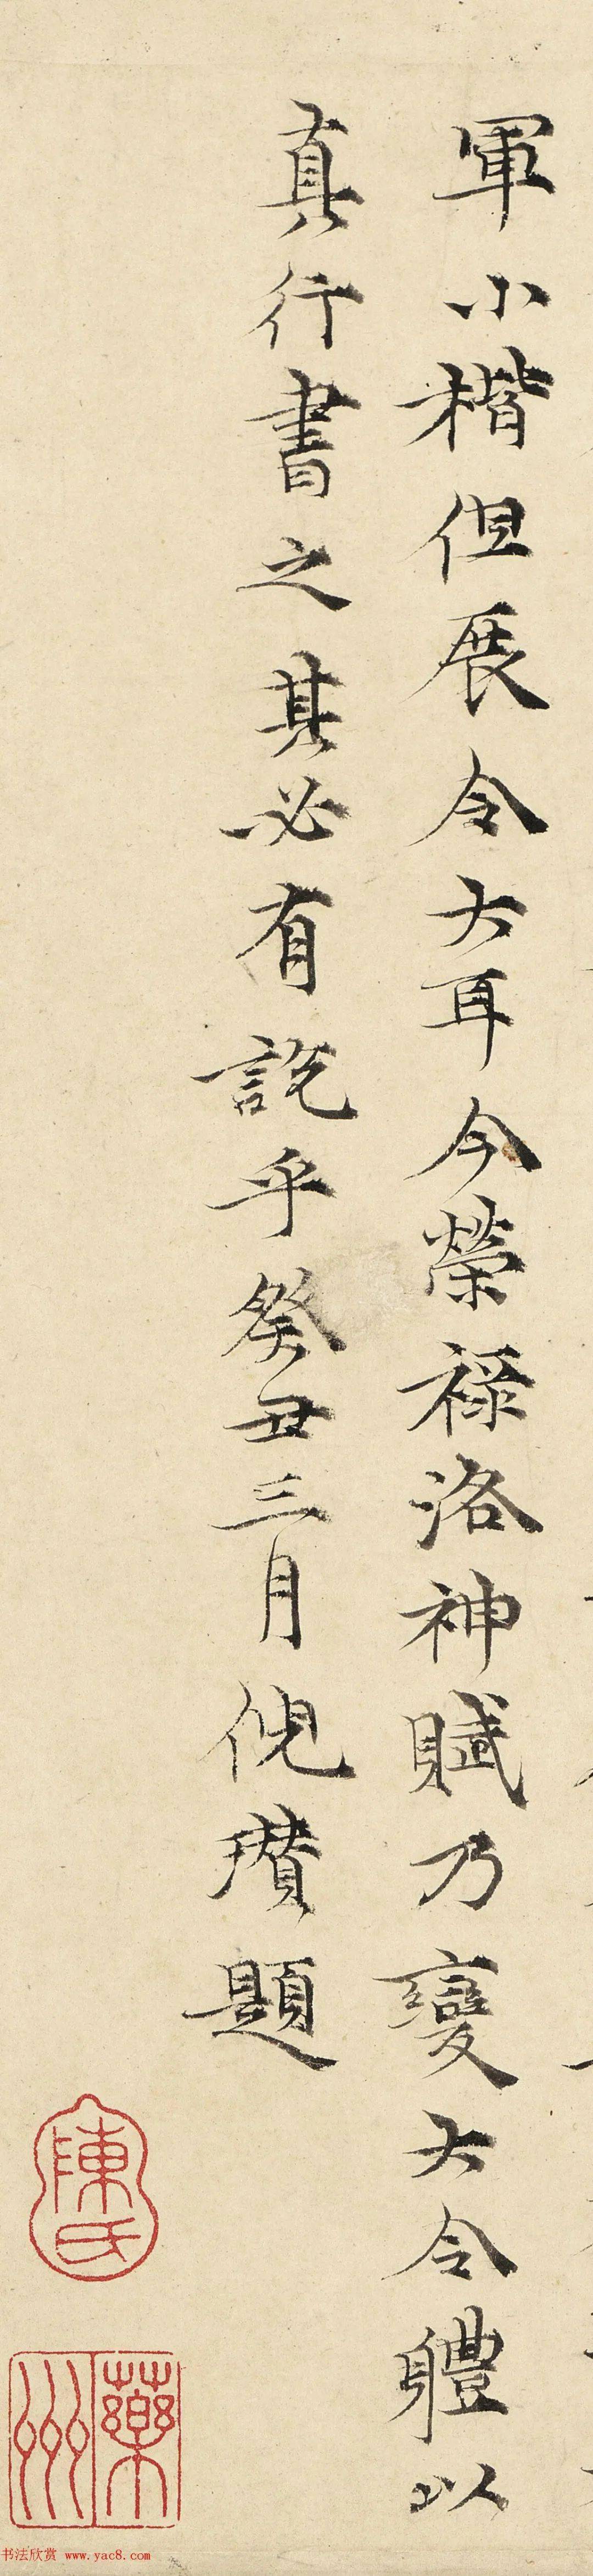 軍小楷但展令大耳今榮祿洛神賦乃變大令軆以
真行書之其必有說乎癸丑三月倪瓚題
陳氏
藥洲
书法欣赏 www.yac8.com